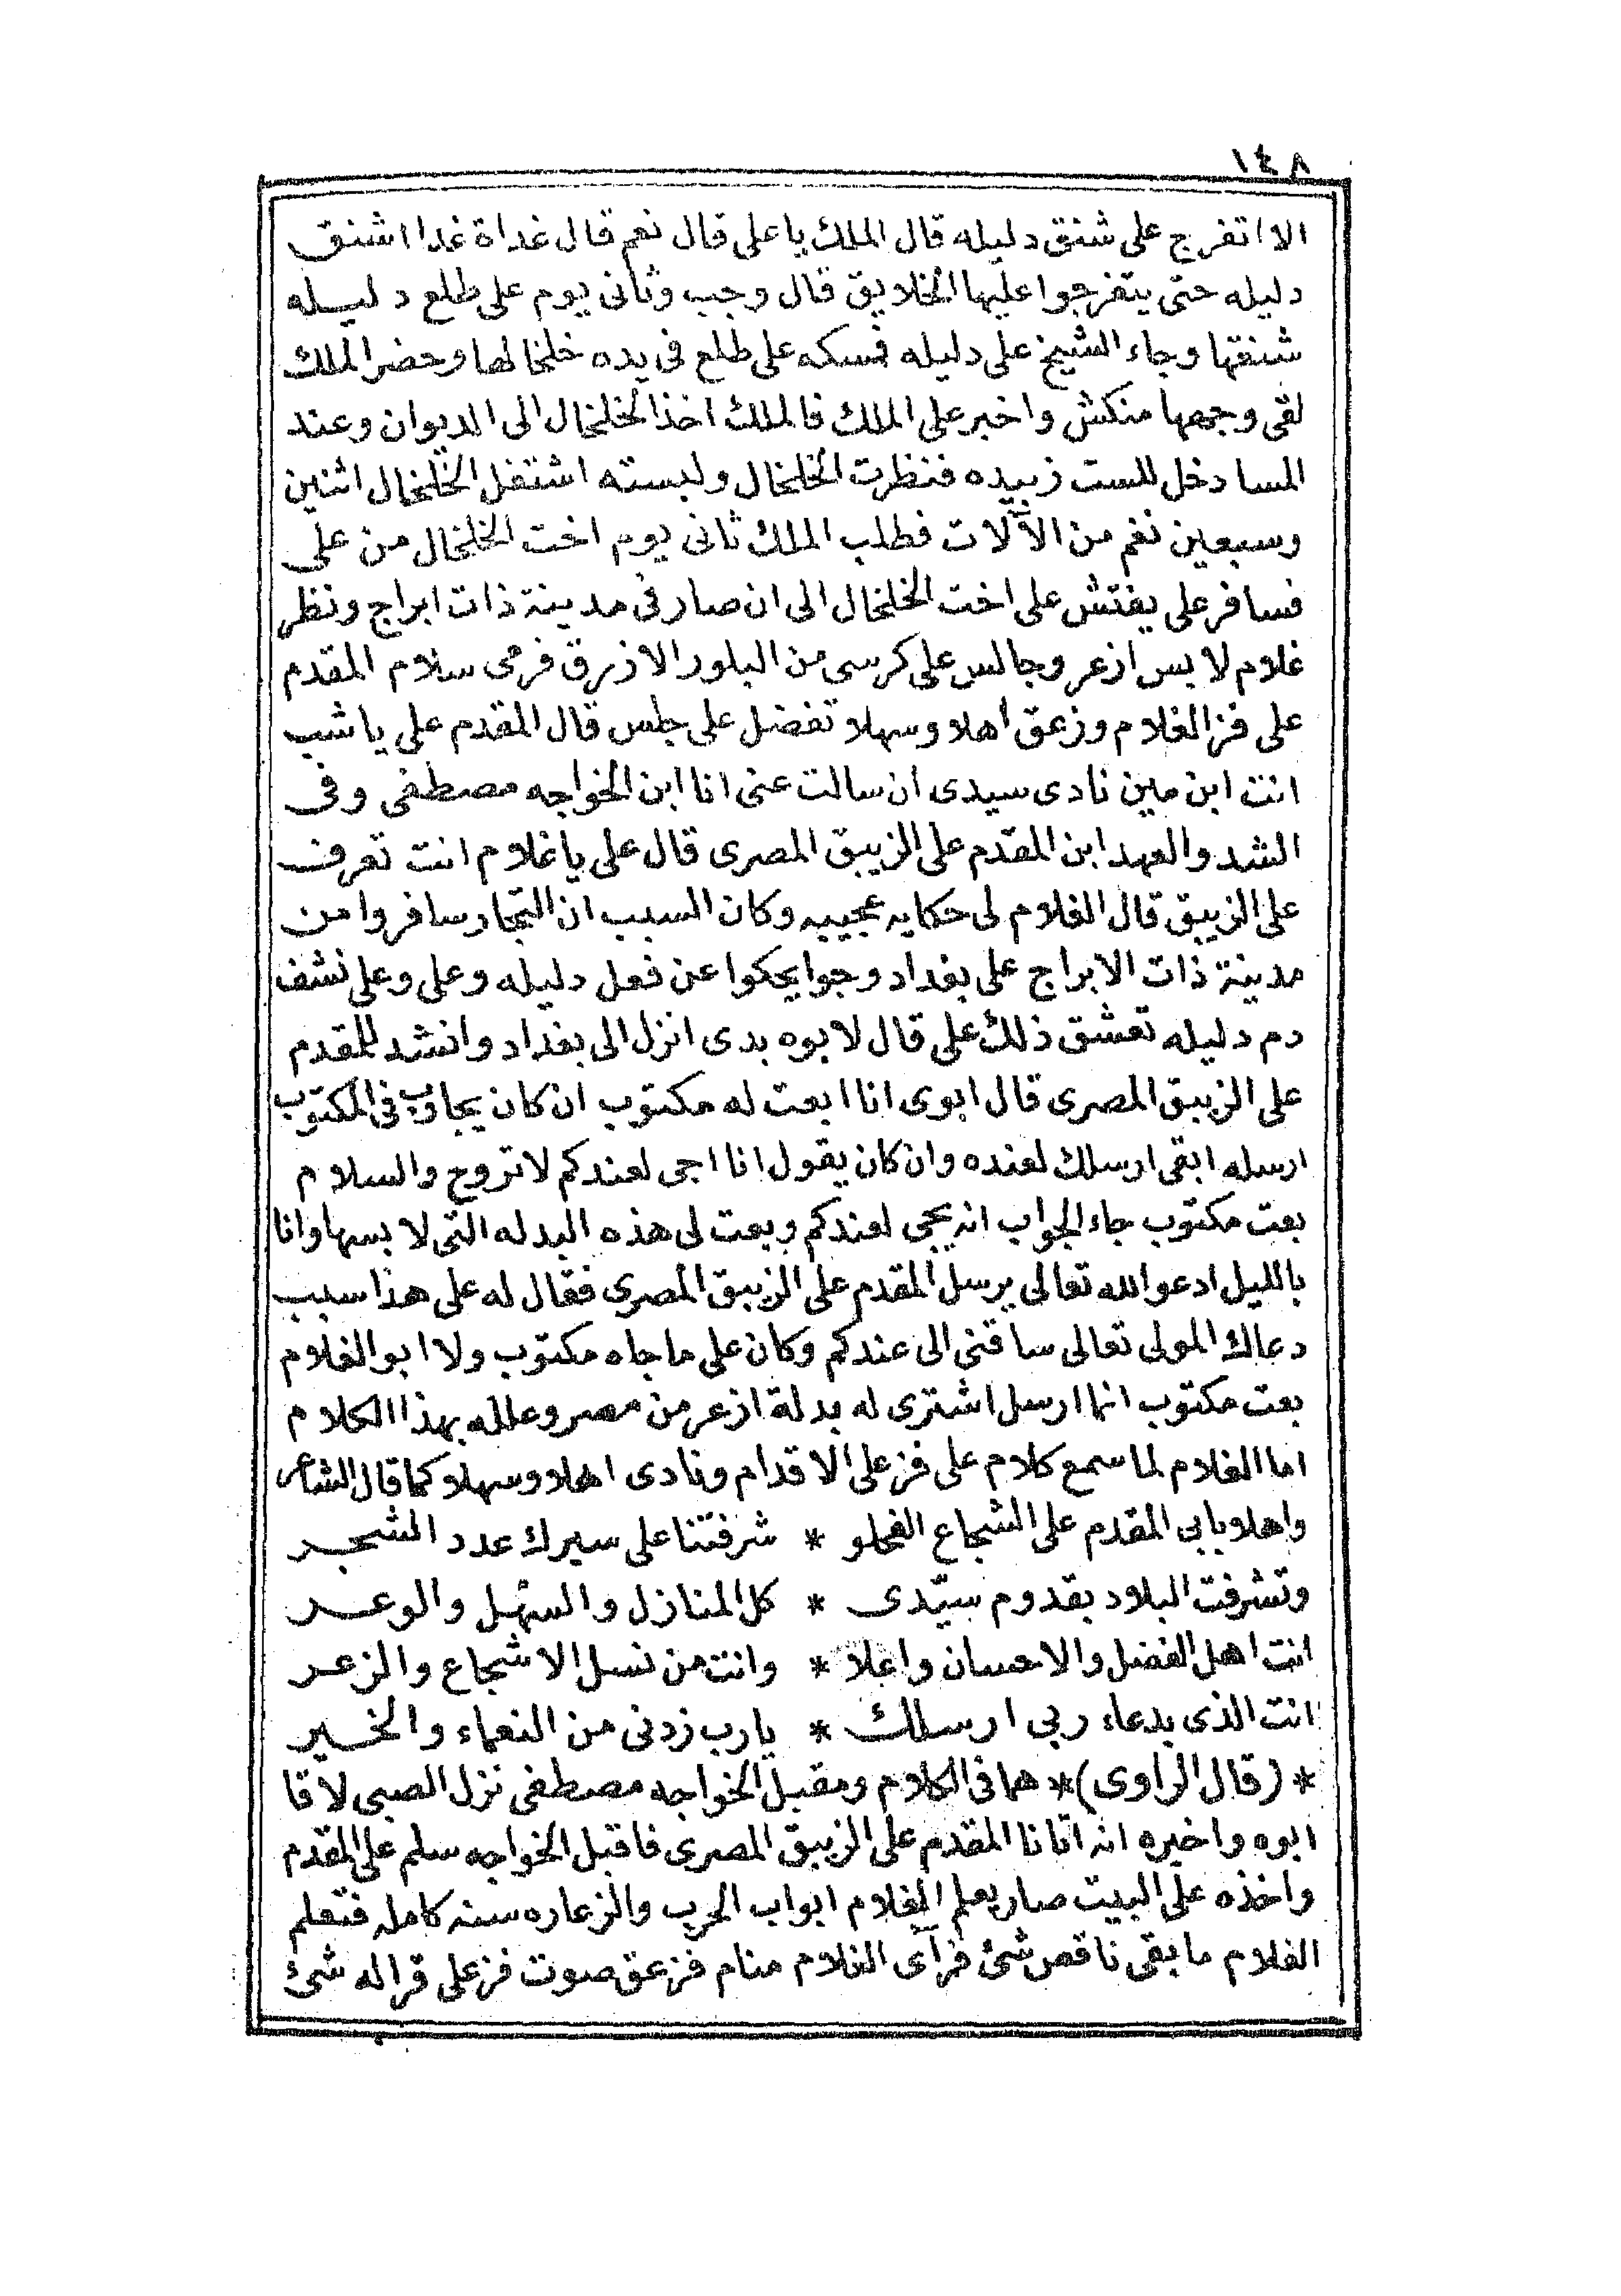 ١٤٨
الا اتفرج على شنق دليله قال الملك يا على قال نعم قال غداة غدا اشنق
دليله حتى يتفرجوا عليها الخلايق قال وجب وثانى يوم على طلع دليله
شنقها وجاء الشيخ على دليله فمسكه على طلع فى يده خلخالها وحضر الملك
لقى وجهها منكش واخبر على الملك فالملك اخذ الخلخال الى الديوان وعند
المسا دخل للست زبيده فنظرت الخلخال ولبسته اشتغل الخلخال اثنين
وسبعين نغم من الآلات فطلب الملك ثانى يوم اخت الخلخال من على
فسافر على يفتش على اخت الخلخال الى ان صار فى مدينة ذات ابراج ونظر
غلام لابس ازعر وجالس على كرسى من البلور الازرق فرمى سلام المقدم
على فز الغلام وزعق اهلا وسهلا تفضل على جلس قال المقدم على يا شب
انت ابن مين نادى سيدى ان سالت عنى انا ابن الخواجه مصطفى وفى
الشد والعهد ابن المقدم على الزيبق المصرى قال على يا غلام انت تعرف
على الزيبق قال الغلام لى حكايه عجيبه وكان السبب ان التجار سافروا من
مدينة ذات الابراج على بغداد وجوا يحكوا عن فعل دليله وعلى وعلى نشف
دم دليله تعشق ذلك على قال لابوه بدى انزل الى بغداد وانشد للمقدم
على الزيبق المصرى قال ابوى انا ابعت له مكتوب ان كان يجاوب فى المكتوب
ارسله ابقى ارسلك لعنده وان كان يقول انا اجى لعندكم لا تروح والسلام
بعت مكتوب جاء الجواب انه يجى لعندكم وبعت لى هذه البدله التى لابسها وانا
بالليل ادعو الله تعالى يرسل المقدم على الزيبق المصرى فقال له على هذا سبب
دعاك المولى تعالى ساقنى الى عندكم وكان على ما جاه مكتوب ولا ابو الغلام
بعت مكتوب انما ارسل اشترى له بدلة ازعر من مصر وعلله بهذا الكلام
اما الغلام لما سمع كلام على فز على الاقدام ونادى اهلا وسهلا كما قال الشاعر
واهلا يابى المقدم على الشجاع الفحلو * شرفتنا على سيرك عدد الشجر
وتشرفت البلاد بقدوم سيّدى * كل المنازل والسهل والوعر
انت اهل الفضل والاحسان واعلا * وانت من نسل الاشجاع والزعر
انت الذى بدعاء ربى ارسلك * يارب زدنى من النعماء والخير
* (قال الراوى)* هما فى الكلام ومقبل الخواجه مصطفى نزل الصبى لاقا
ابوه واخبره انه اتانا المقدم على الزيبق المصرى فاقبل الخواجه سلم على المقدم
واخذه على البيت صار يعلم الغلام ابواب الحرب والزعاره سنه كامله فتعلم
الغلام ما بقى ناقص شئ فرآى الغلام منام فزعق صوت فز على قرا له شئ